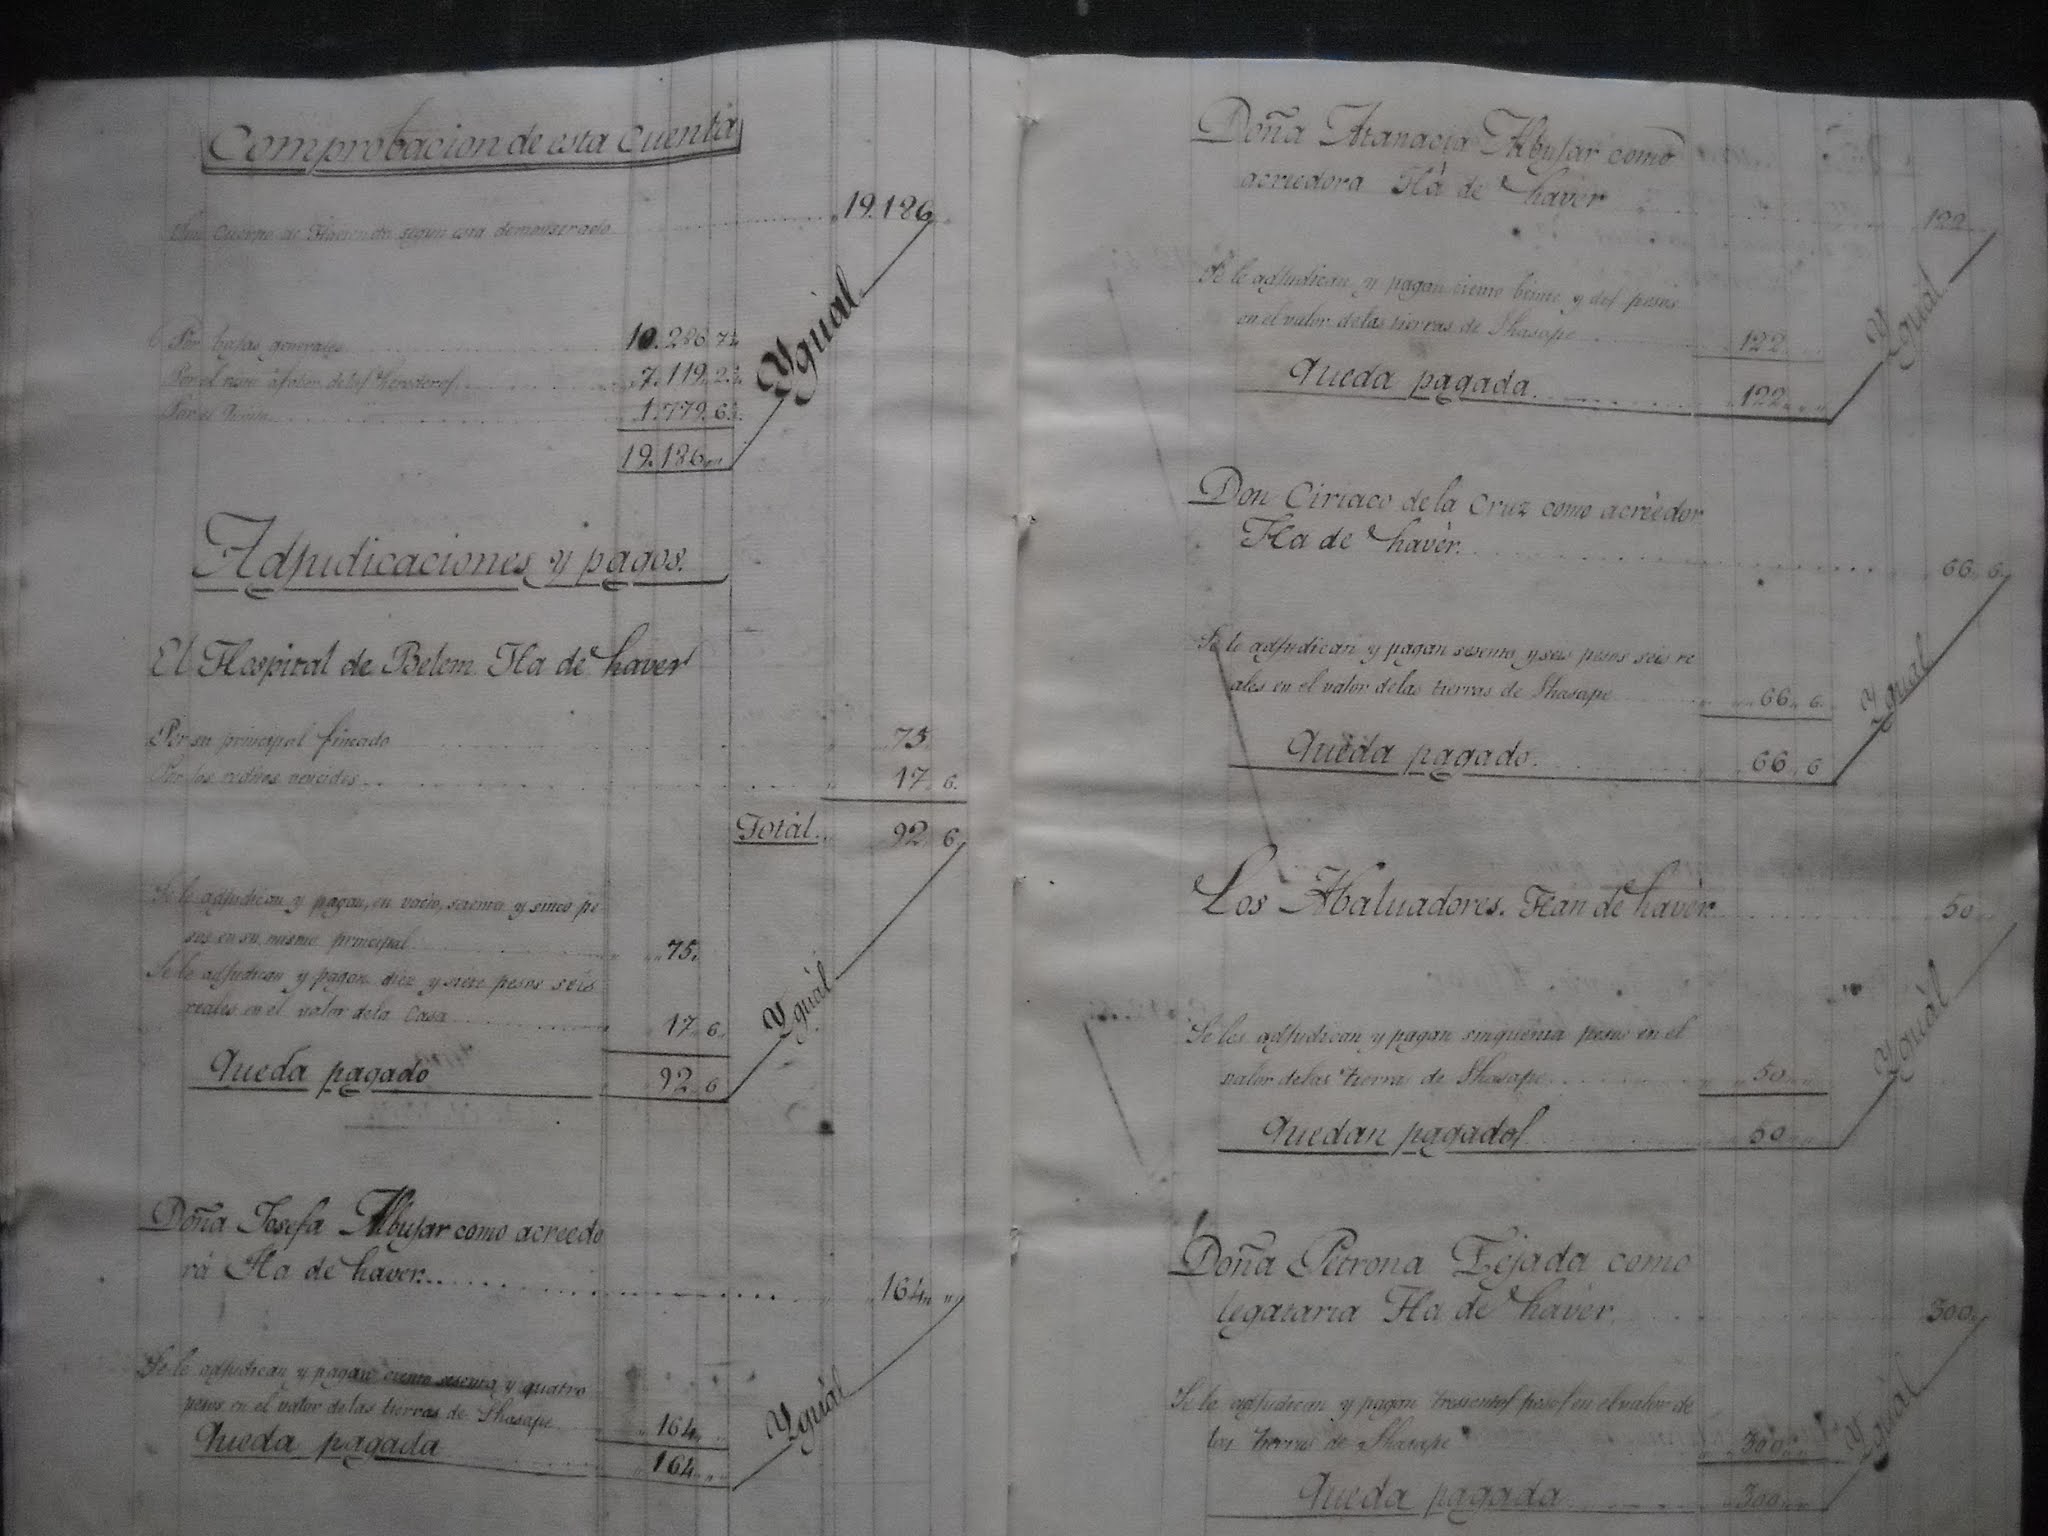 Comprobacion de esta Cuenta
cuerpo de Hacienda segun está demonstrado 19.186
Por bajas generales 10.286. 7
Por el a fabor de los herederos 7.119. 2
Por el Quinto 1.779. 6
19.186
Ygual
Adjudicaciones y pagos.
El Hospital de Belem. Ha de haver
Por su principal fincado 75
Por los reditos vencidos 17. 6.
Total. 92. 6
Se le adjudican y pagan, en vacio, setenta y sinco pe
sos en su mismo principal 75.
Se le adjudican y pagan diez y siete pesos seis
reales en el valor de la Casa 17. 6.
Queda pagado 92. 6
Ygual
Doña Josefa Albujar como acreedo
rá Ha de haver. 164
Se le adjudican y pagan ciento sesenta y quatro
pesos en el valor de las tierras de Shasape 164
Queda pagada 164
Ygual
Doña Atanacia Albujar como
acreedora Há de haver 122
Se le adjudican y pagan ciento beinte y dos pesos
en el valor de las tierras de Shasape 122
Queda pagada 122
Ygual
Don Ciriaco de la Cruz como acreedor
Ha de haver. 66. 6.
Se le adjudican y pagan sesenta y seis pesos seis re
ales en el valor de las tierras de Shasape 66. 6.
Queda pagado. 66. 6
Ygual
Los Abaluadores. Han de haver 50
Se les adjudican y pagan sinquenta pesos en el
valor de las tierras de Shasape 50
Quedan pagados 50
Ygual
Doña Petrona Tejada como
legataria Ha de haver. 300
Se le adjudican y pagan tresientos pesos en el valor de
las tierras de Shasape 300
Queda pagada 300
Ygual